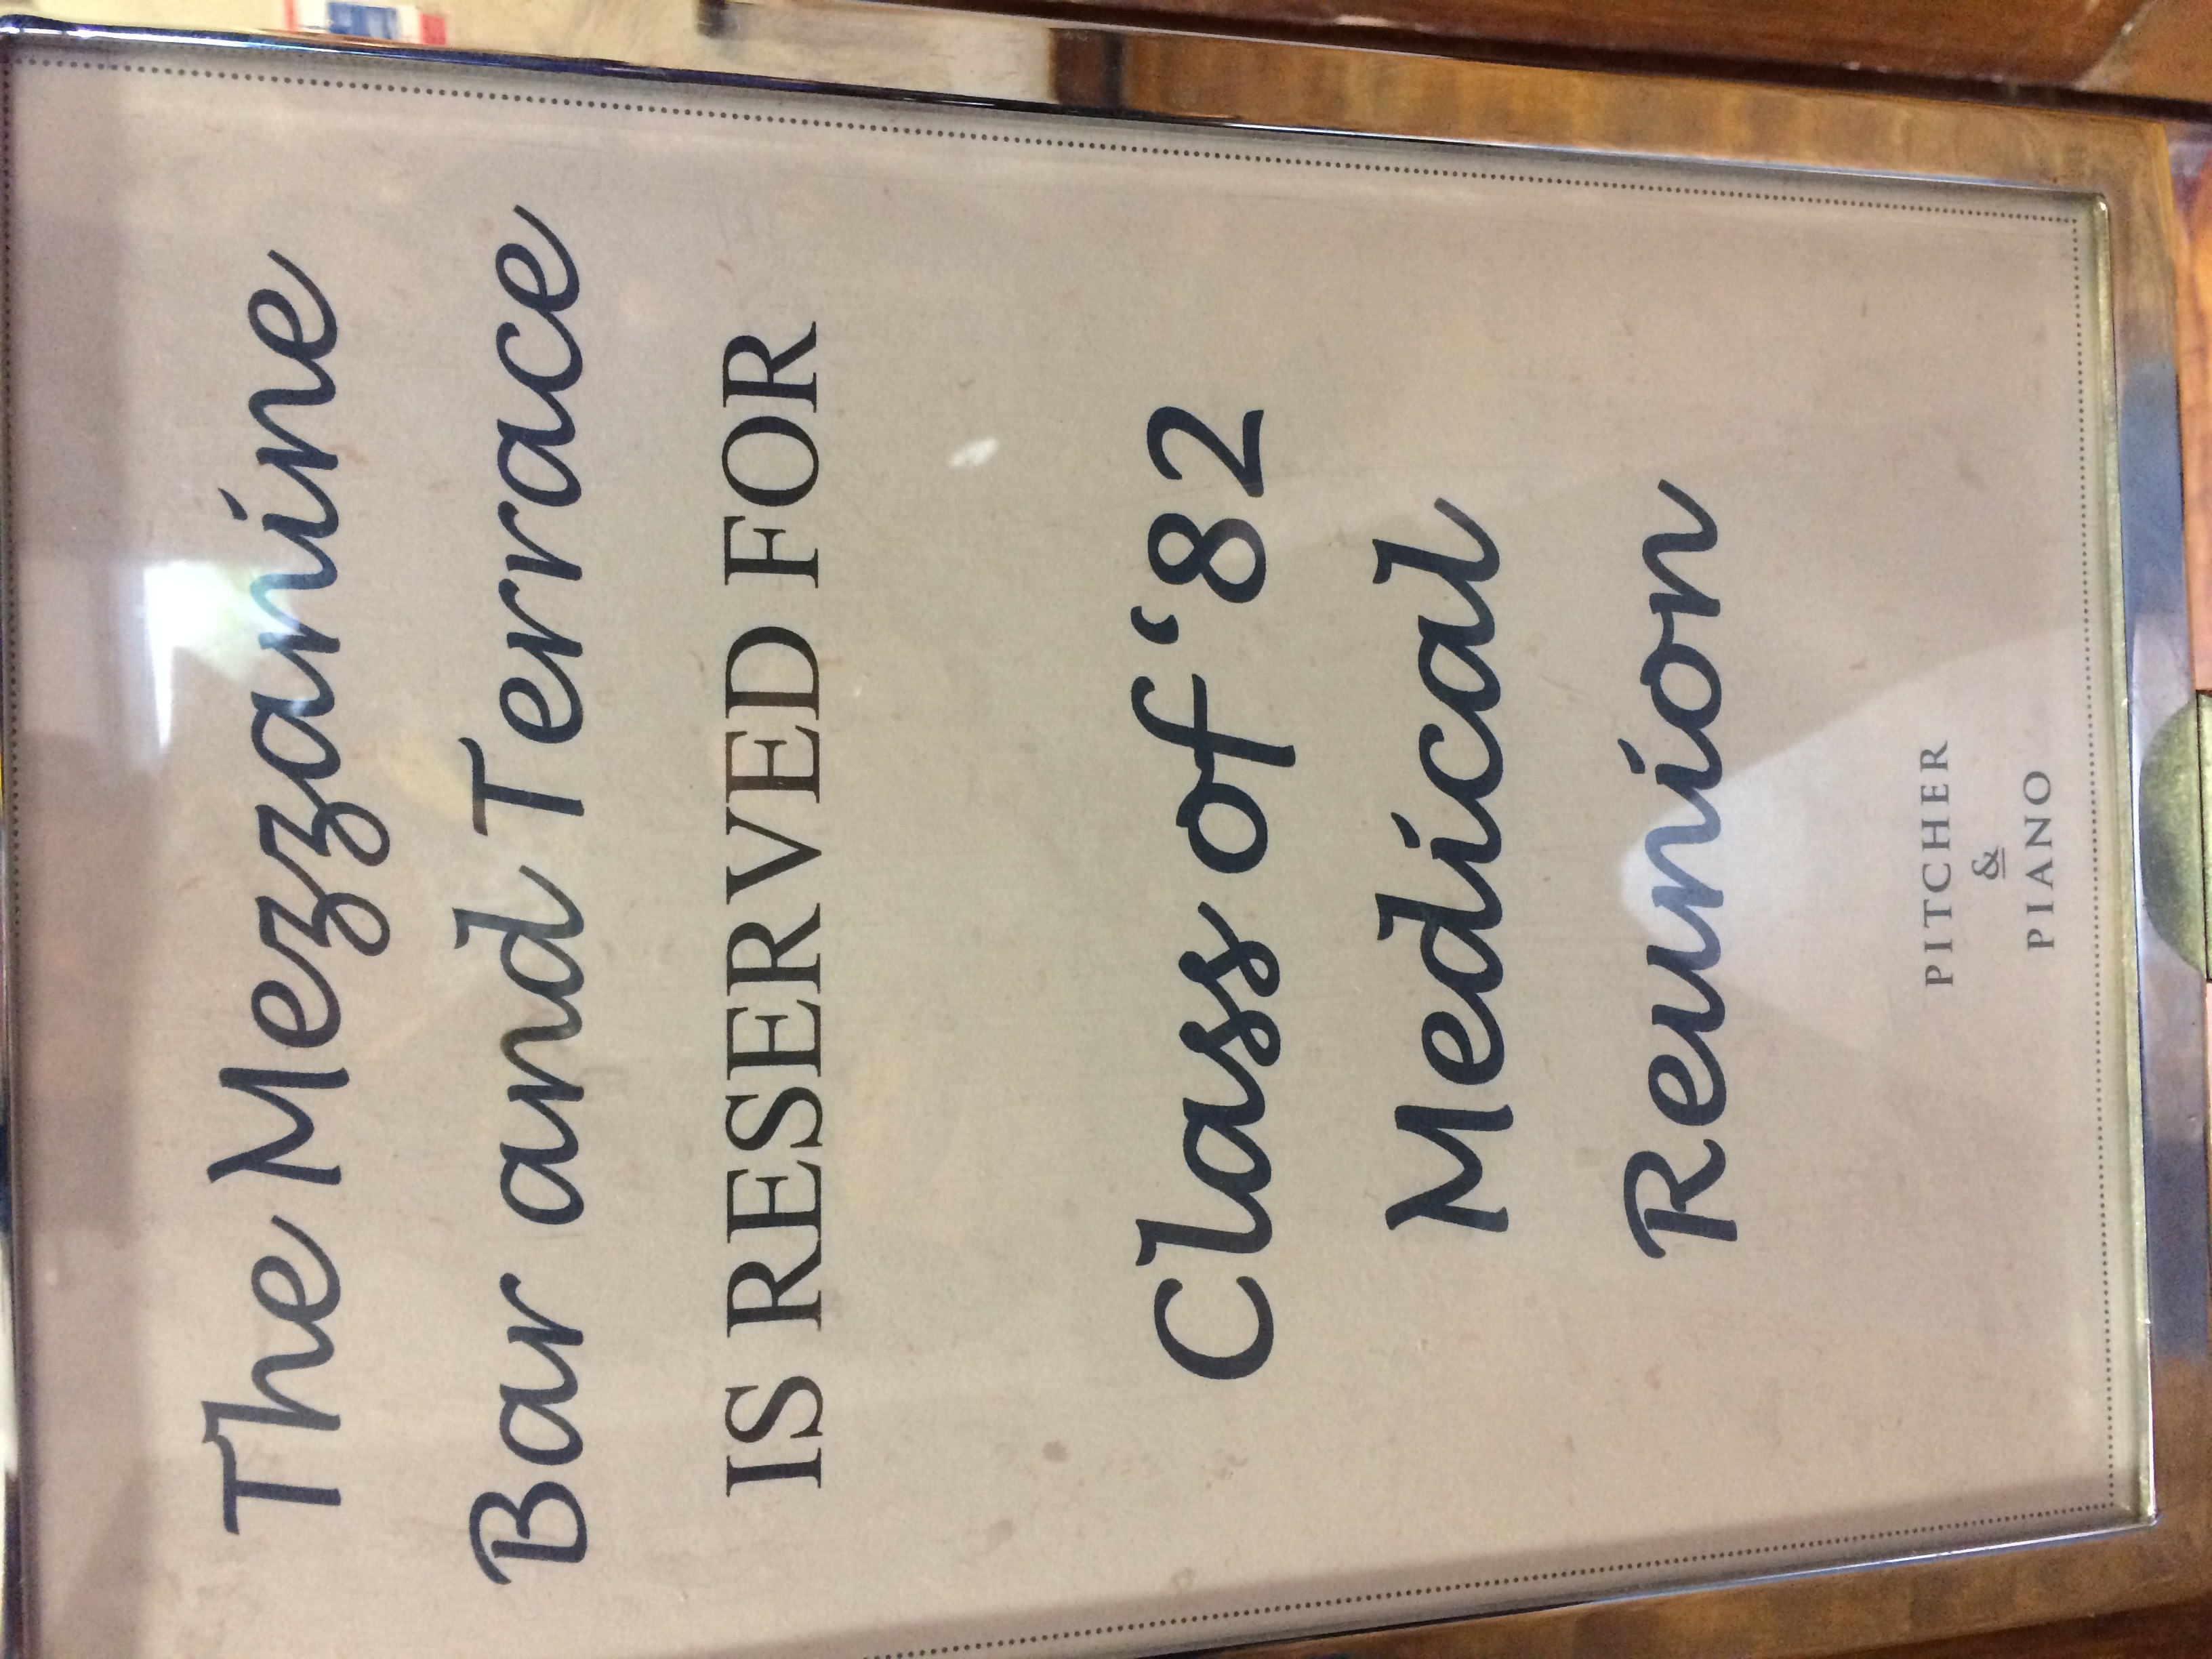 The Mezzanine
Bar and Terrace
IS RESERVED FOR
Class of ‘82
Medical
Reunion
PITCHER
&
PIANO